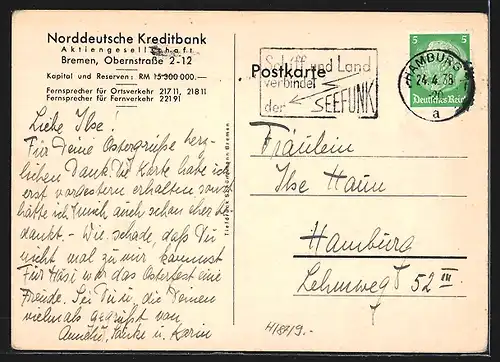 Norddeutsche Kreditbank
Aktiengesellschaft
Bremen, Obernstraße 2-12
Kapital und Reserven: RM 15 300 000.—
Fernsprecher für Ortsverkehr 217 11, 218 11
Fernsprecher für Fernverkehr 221 91
Liebe Ilse!
Für Deine Ostergrüße herz-
lichen Dank. Die Karte habe ich
erst vorgestern erhalten, sonst
hätte ich mich auch schon eher be-
dankt. - Wie schade, daß Du
nicht mal zu mir kommst
Für Hasi war das Osterfest eine
Freude. Sei Du u. die Deinen
vielmals gegrüßt von
u. Karin
Tiefdruck Bremen
Postkarte
Schiff und Land
verbindet
der SEEFUNK
HAMBURG
24.4.38
a
5 5
Deutsches Reich
Fräulein
Ilse Haun
Hamburg
Lehmweg 52 III